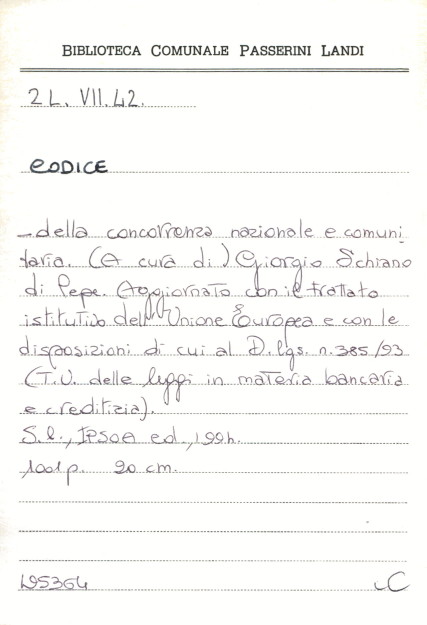 BIBLIOTECA COMUNALE PASSERINI LANDI
2 L. VII. 42.
CODICE
- della concorrenza nazionale e comuni
taria. (A cura di) Giorgio Schiano
di Pepe. Aggiornato con il trattato
istitutivo dell'Unione Europea e con le
disposizioni di cui al D. lgs. n. 385/93
(T.U. delle leggi in materia bancaria
e creditizia).
S. l., IPSOA ed., 1994.
1001 p. 20 cm.
195364
C